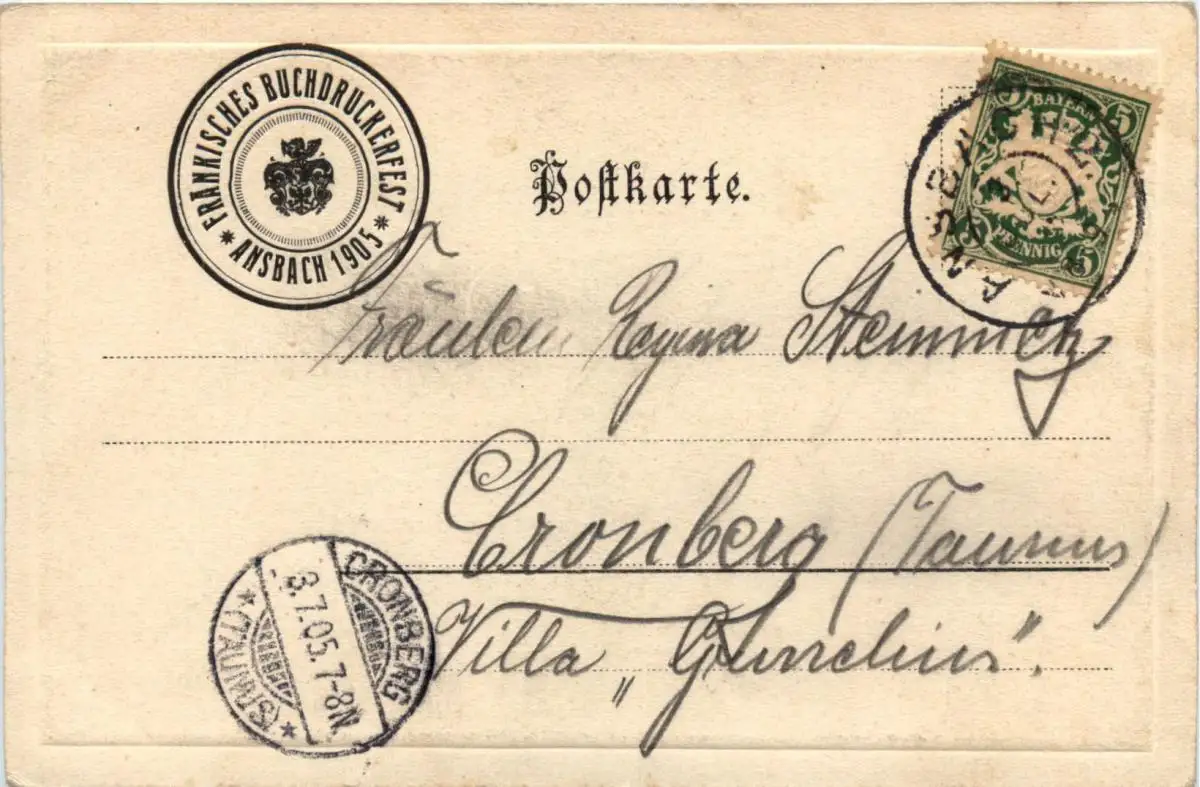 FRÄNKISCHES BUCHDRUCKERFEST
* ANSBACH 1905 *
Postkarte.
5 BAYERN 5
PFENNIG 5
Fräulein Regina
Cronberg (Taunus)
Villa
CRONBERG
3.7.05.7-8N.
*(TAUNUS)*